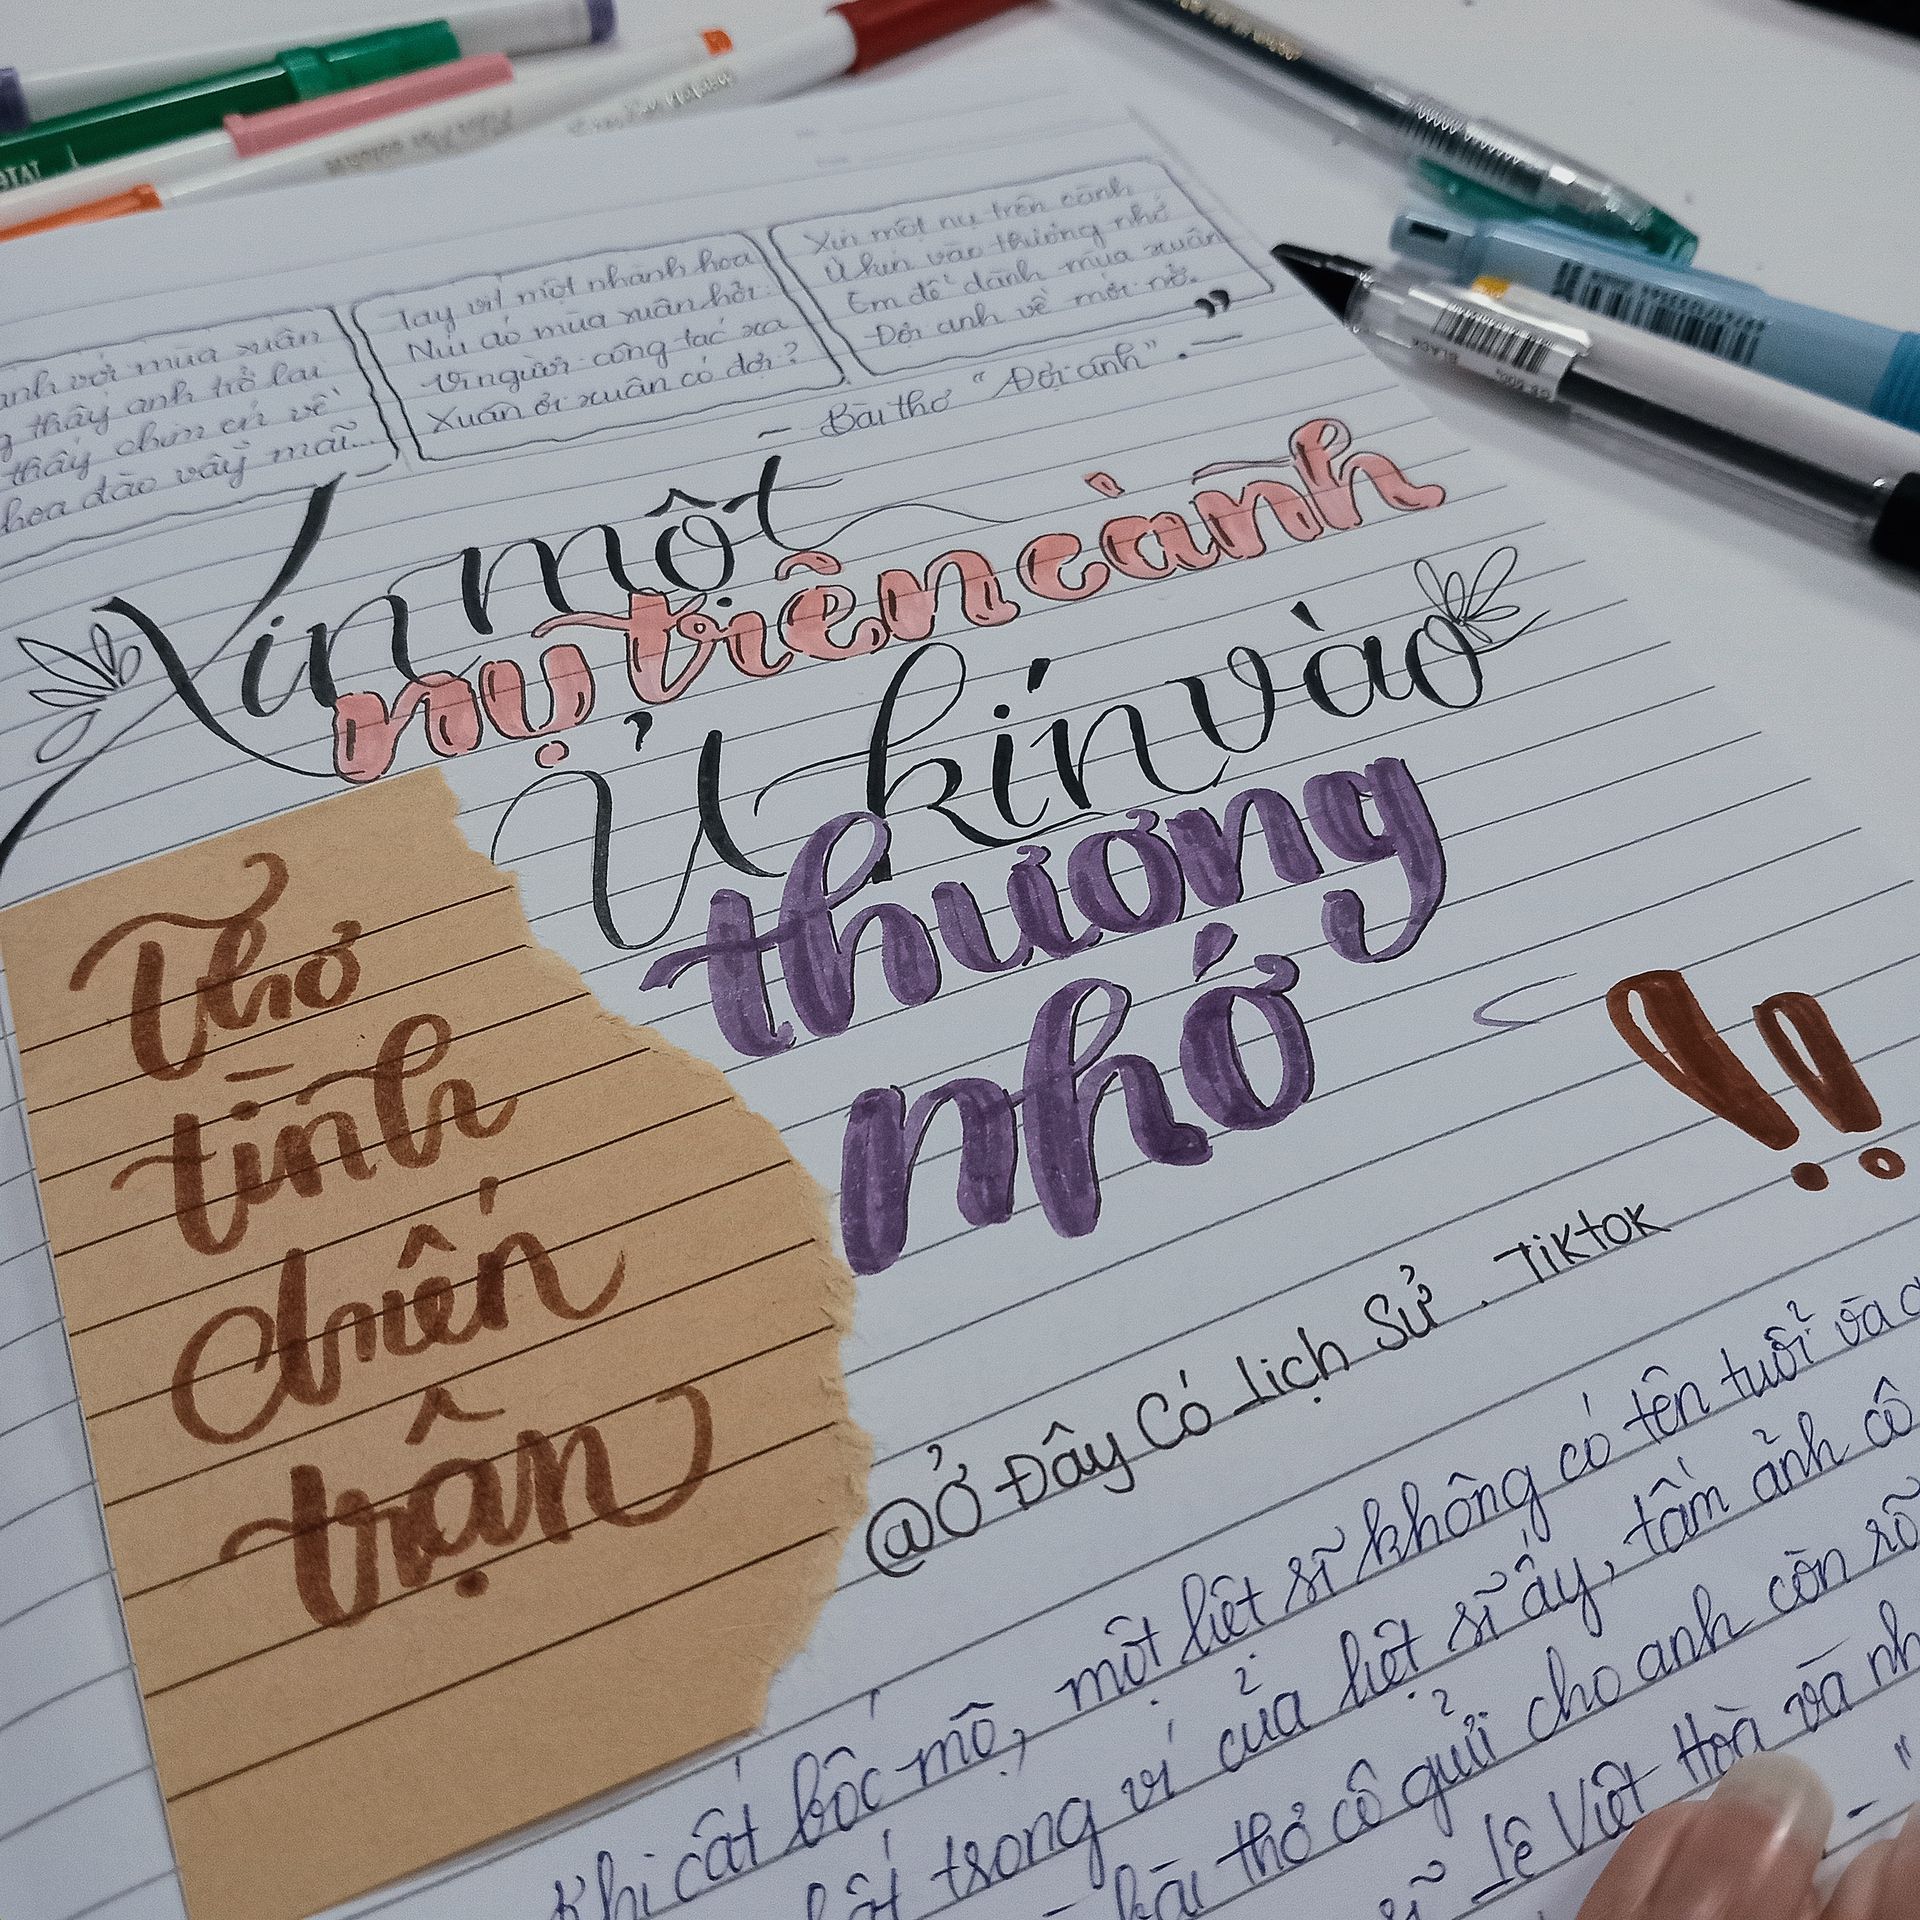 anh với mùa xuân
thấy anh trở lại
thấy chim én về
hoa đào vẫy mãi...
Tay vít một nhành hoa
Níu áo mùa xuân hỏi:
Vì người công tác xa
Xuân ơi xuân có đợi?
Xin một nụ trên cành
Ủ kín vào thương nhớ
Em để dành mùa xuân
Đợi anh về mới nở. ”
- Bài thơ "Đợi anh". -
Xin một
nụ trên cành
Ủ kín vào
thương
nhớ
Thơ
tình
chiến
trận
!!
@Ở Đây Có Lịch Sử. Tiktok
Khi cất bốc mộ, một liệt sĩ không có tên tuổi và
trong ví của liệt sĩ ấy, tấm ảnh cô
- bài thơ cô gửi cho anh còn rõ
sĩ Lê Viết Hoà và
- "